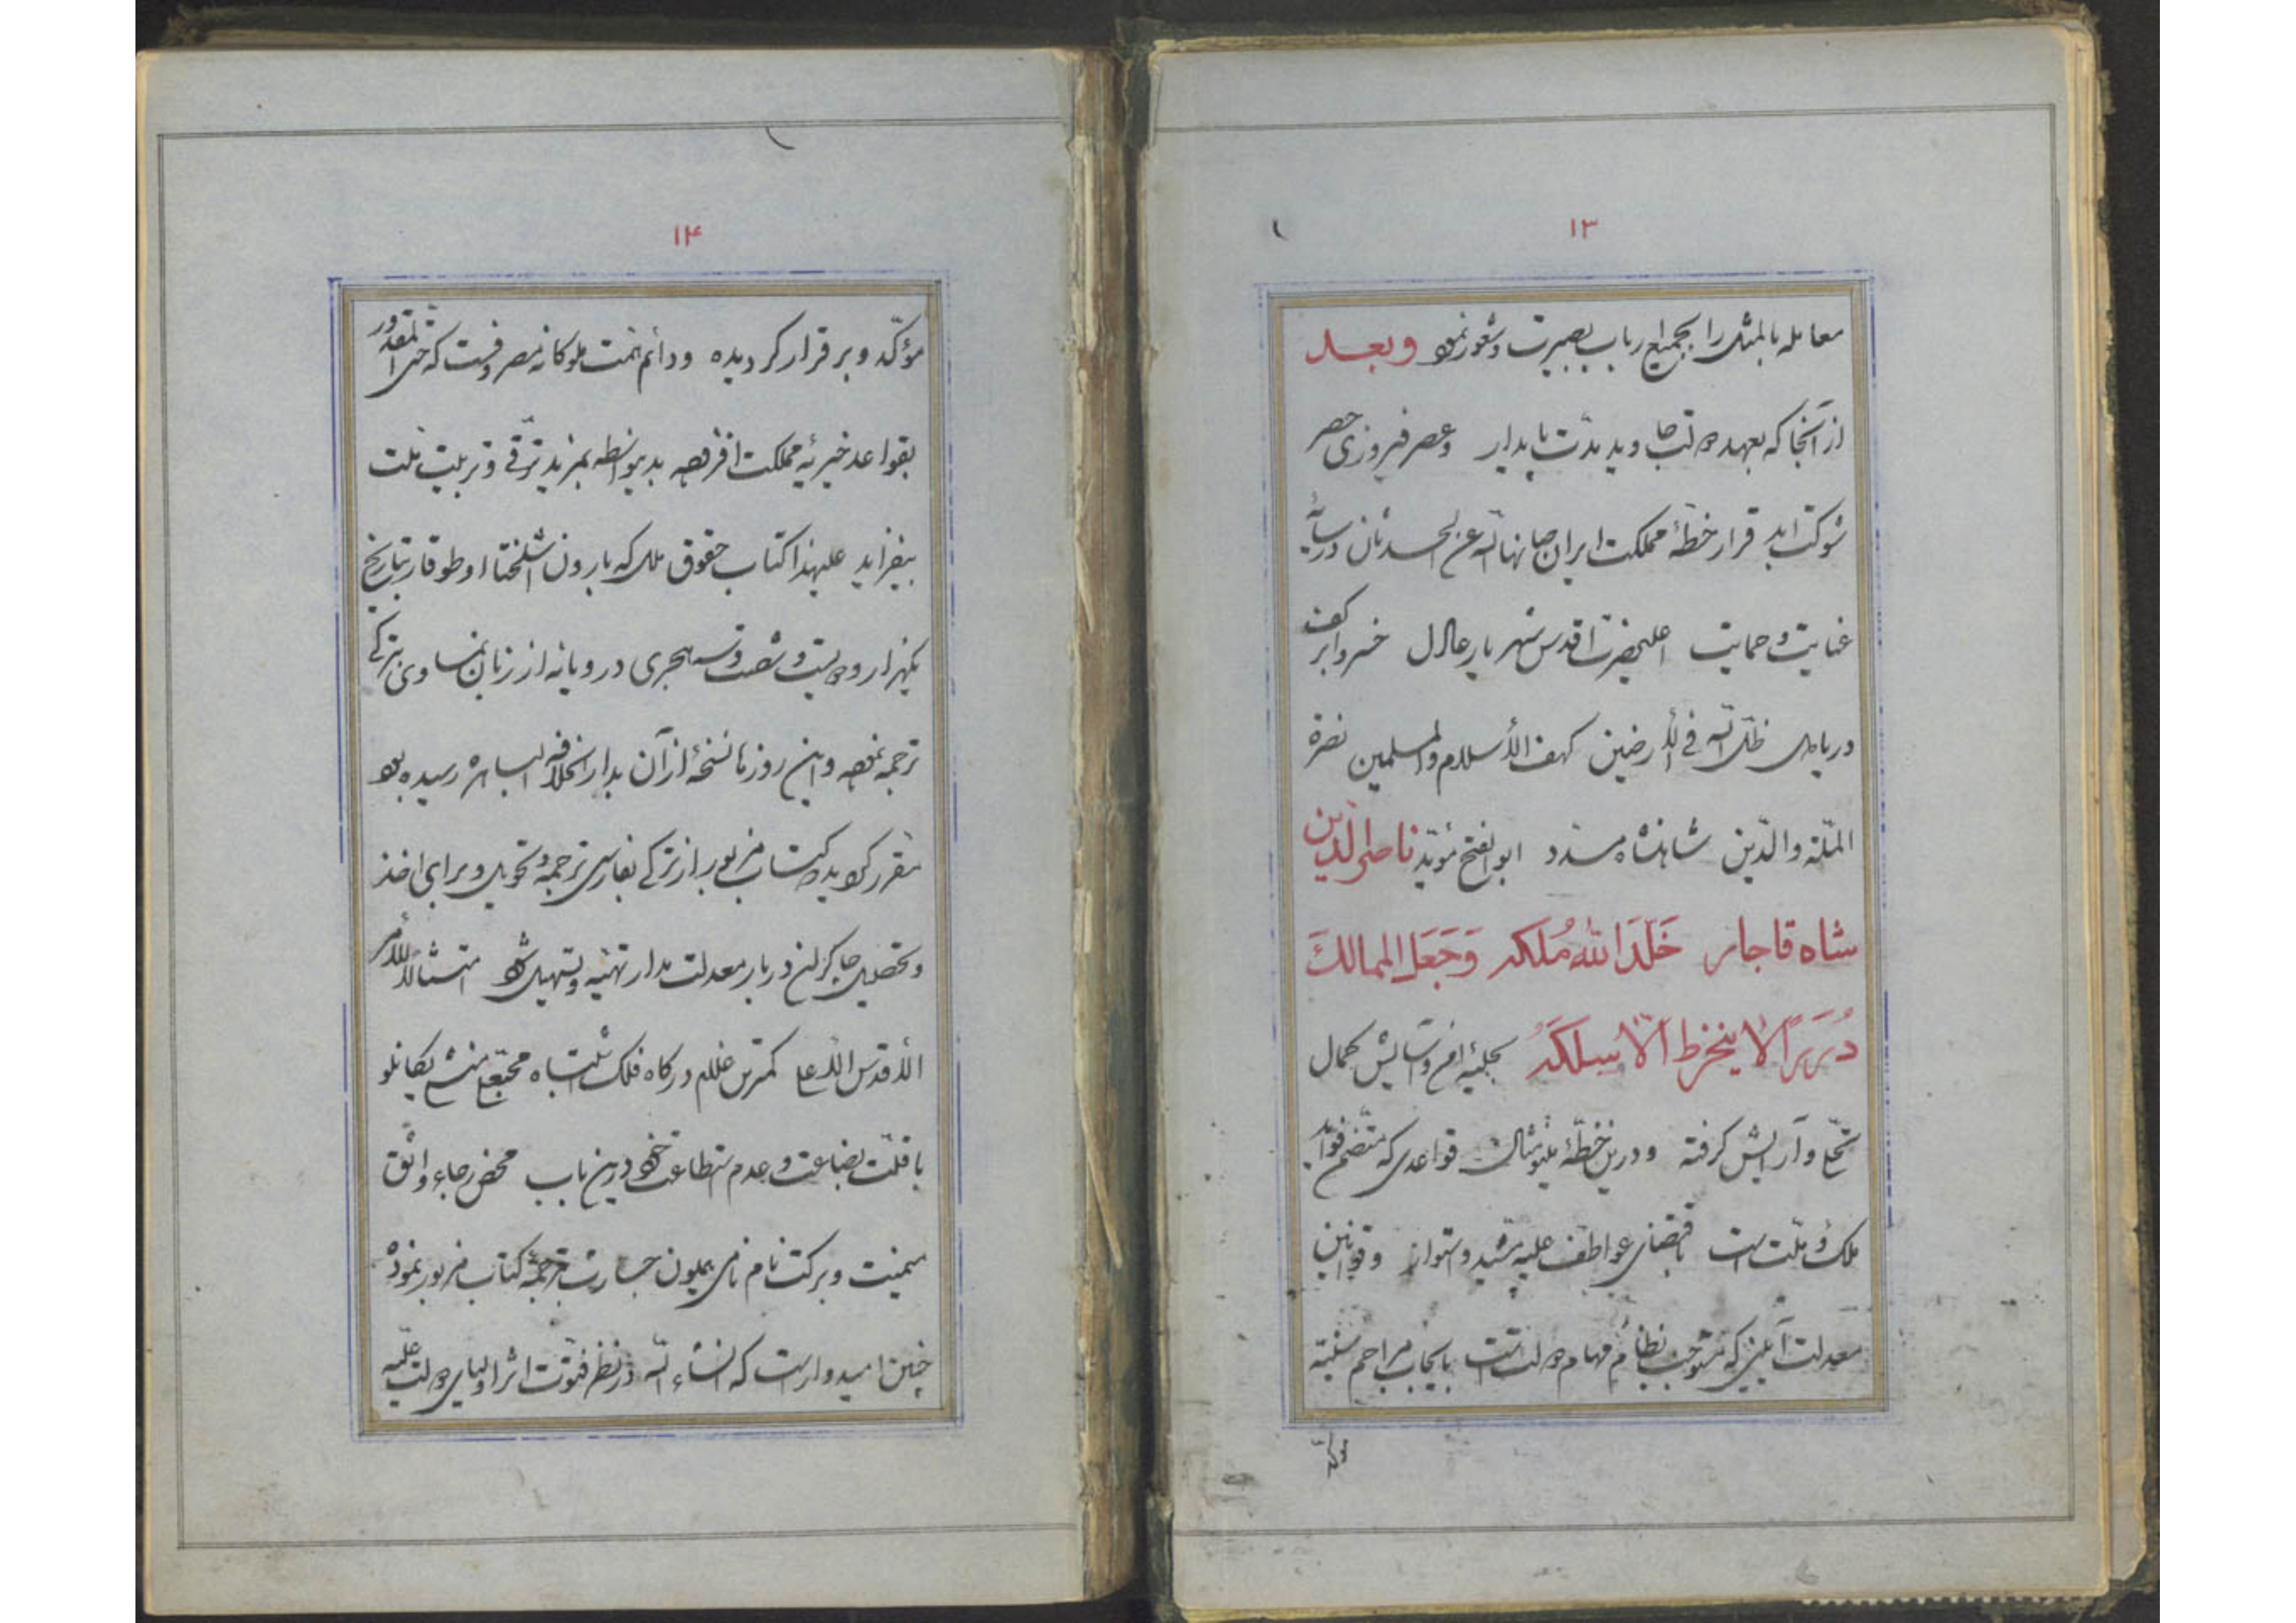 ۱۳
معامله بالمثل را بجمیع ارباب بصیرت و شعور نمود وبعد
از آنجا که بعهد دولت جاوید مدت پایدار وعصر فیروزی حصر
شوکت ابد قرار خطهٔ مملکت ایران صانها الله عن الحدثان در سایهٔ
عنایت و حمایت اعلیحضرت اقدس شهریار عادل خسرو ابر کف
دریا دل ظل الله فی الأرضین کهف الأسلام والمسلمین نصرة
الملّة والدّین شاهنشاه مسدد ابوالفتح مؤیّد ناصرالدّین
شاه قاجار خَلَّدَ اللهُ مُلکَه وَجَعَلَ الممالکَ
دُرَرًا لا ینخرط الّا بسلکه بحلیهٔ امن و آسایش کمال
تحلّی و آرایش گرفته ودرین خطّهٔ مینومثال قواعدی که متضمن فواید
ملک و ملّت است باقتضای عواطف علیه مشید و استوار وقوانین
معدلت آیینی که مستوجب نظام مهام دولت است بایجاب مراحم سنیّه
مؤکّد
۱۴
مؤکّد و برقرار گردیده ودائم همت ملوکانه مصروفست که حتی المقدور
بقواعد خیریهٔ مملکت افزوده بدینواسطه بمزید ترقّی و تربیت ملت
بیفزاید علیهذا کتاب حقوق ملل که بارون اشلختا اوطوقار بتاریخ
یکهزار و دویست و شصت و سه هجری در ویانه از زبان نمساوی بترکی
ترجمه نموده و این روزها نسخهٔ از آن بدارالخلافه الباهره رسیده بود
مقرر گردید که کتاب مزبور از ترکی بفارسی ترجمه و تحویل و برای اخذ
وتحصیل چاکران دربار معدلت مدار تهیّه و تسهیل شود امتثالاً للأمر
الأقدس الأعلی کمترین غلام درگاه فلک اشتباه محبعلی منشی یکانلو
با قلّت بضاعت و عدم استطاعت خود درین باب محض رجاء واثق
میمنت و برکت نام نامی همایون جسارت بترجمهٔ کتاب مزبور نموده
چنین امیدوار است که انشاء الله در نظر فتوّت اثر اولیای دولت علیّه